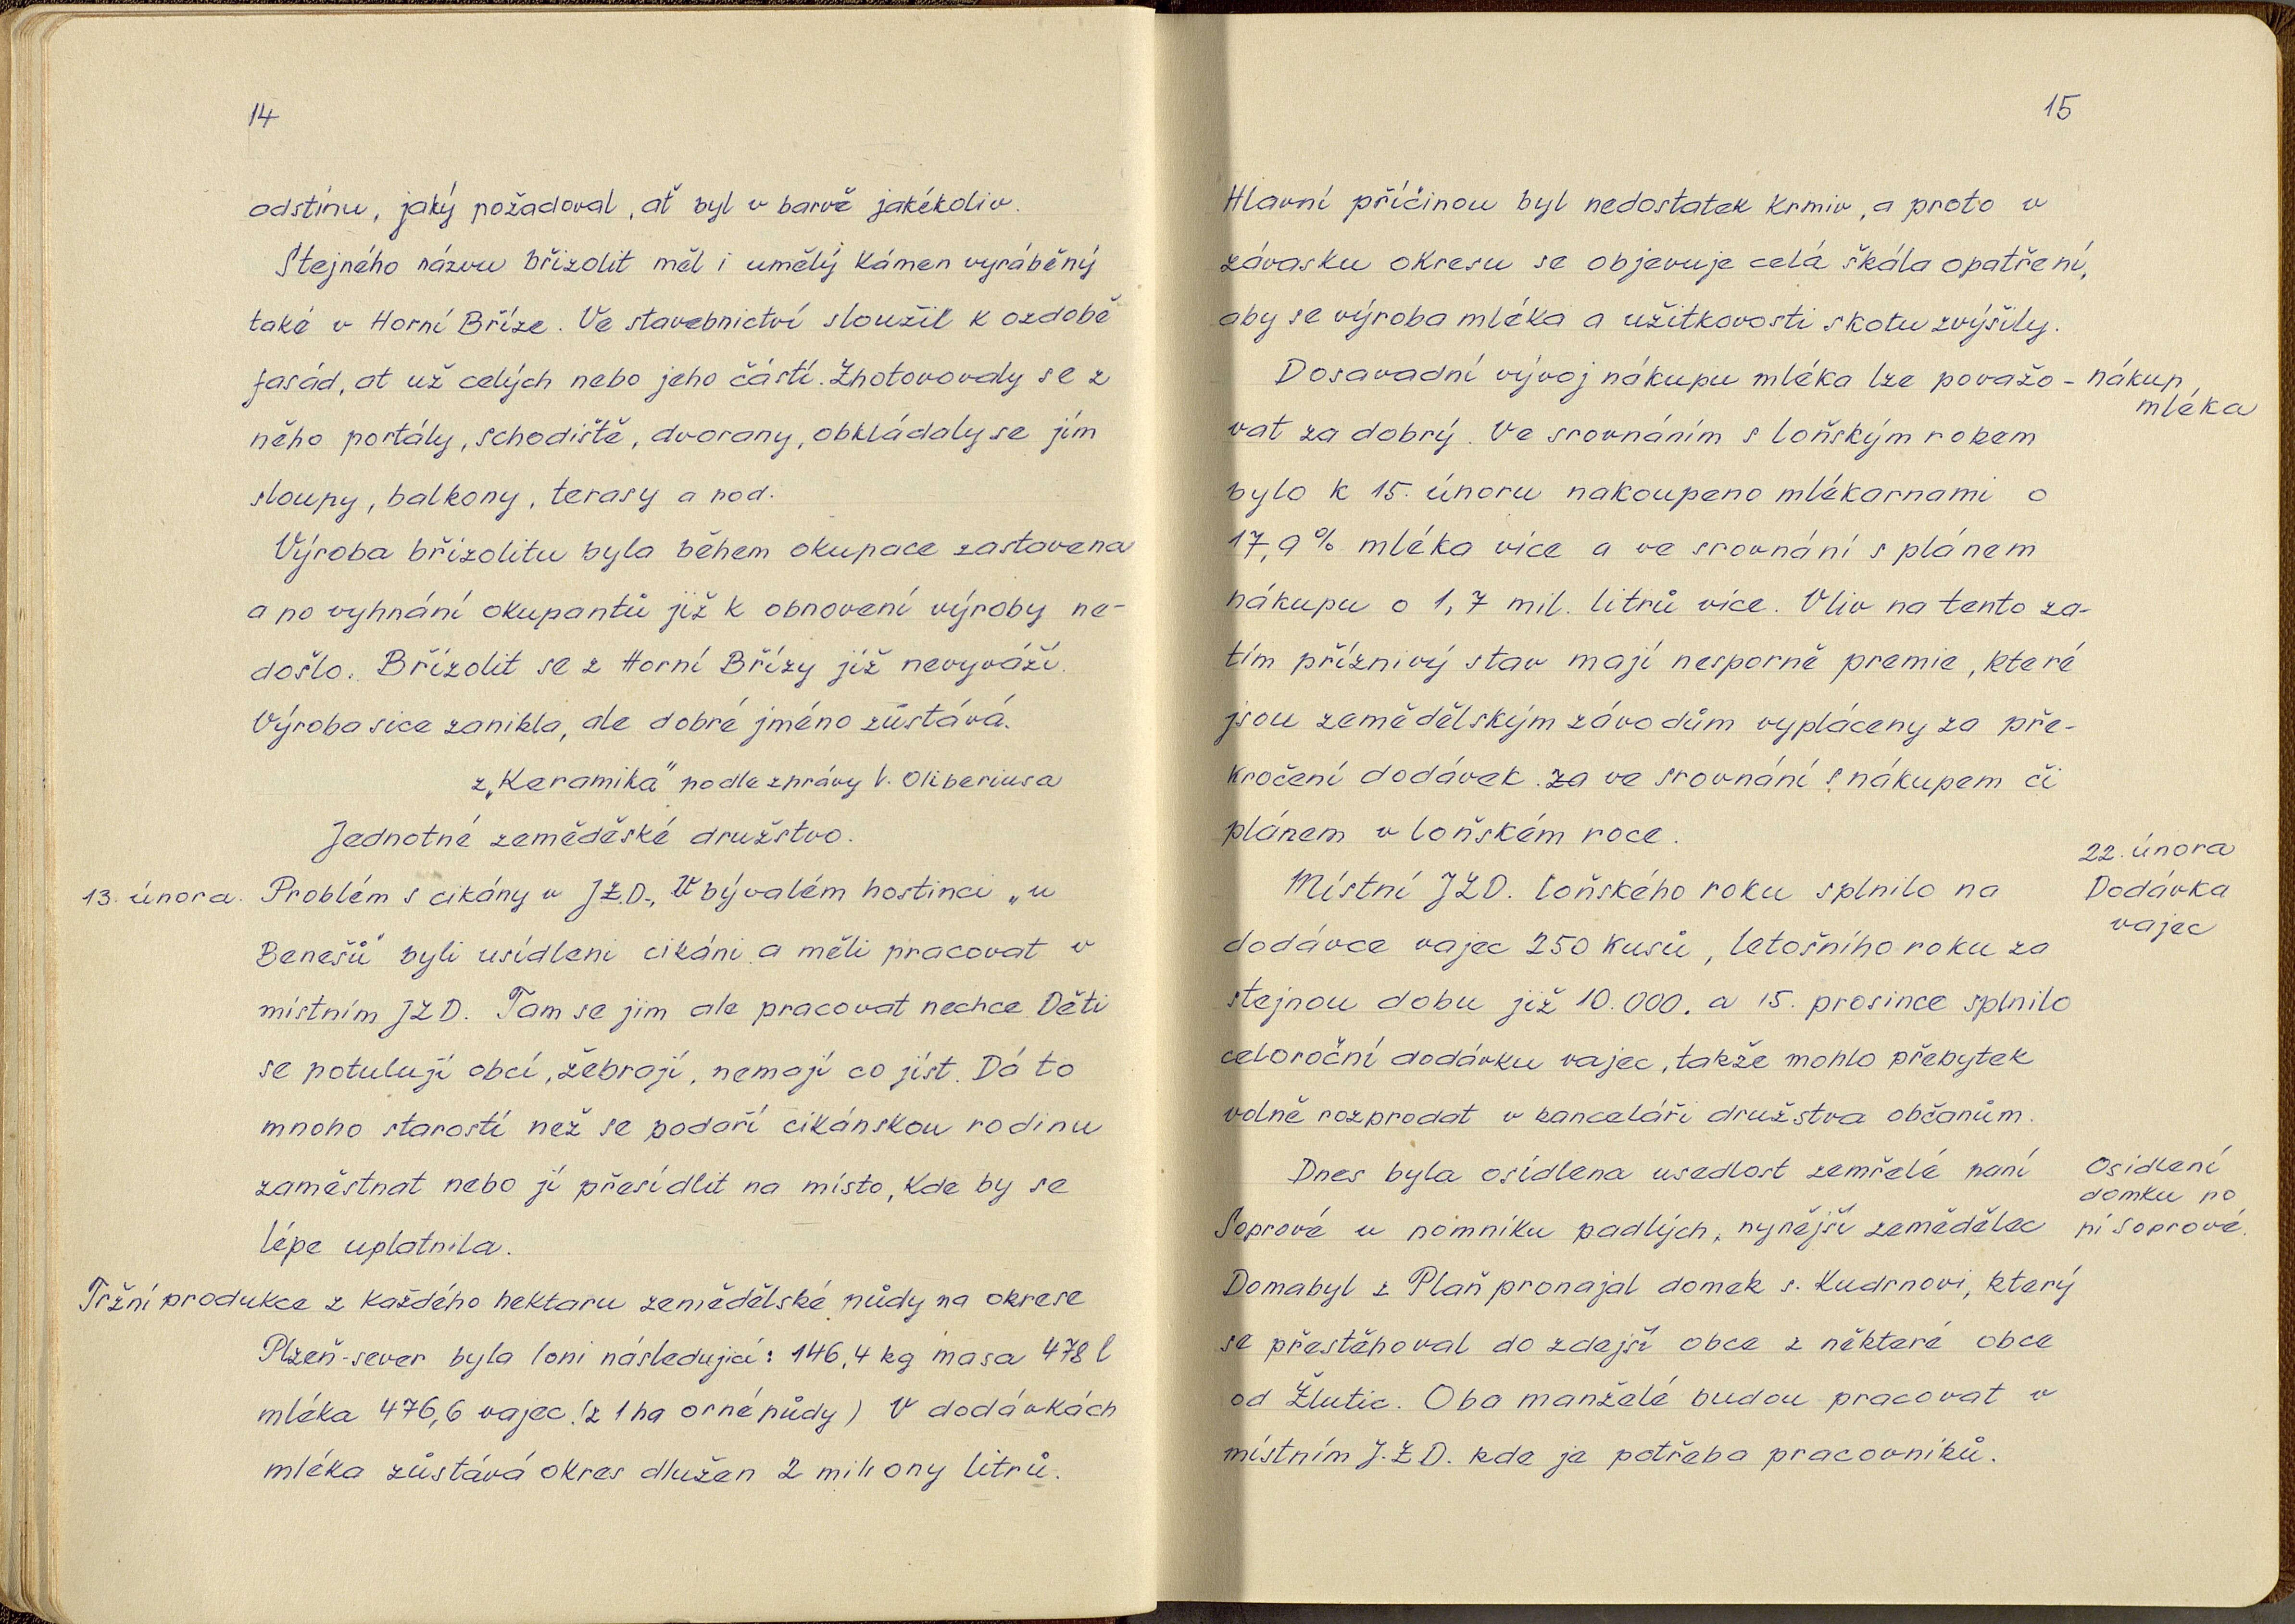 14
odstínu, jaký požadoval, ať byl v barvě jakékoliv.
Stejného názvu břizolit měl i umělý kámen vyráběný
také v Horní Bříze. Ve stavebnictví sloužil k ozdobě
fasád, at už celých nebo jeho částí. Zhotovovaly se z
něho portály, schodiště, dvorany, obkládaly se jím
sloupy, balkony, terasy a pod.
Výroba břizolitu byla během okupace zastavena
a po vyhnání okupantů již k obnovení výroby ne-
došlo. Břízolit se z Horní Břízy již nevyváží.
Výroba sice zanikla, ale dobré jméno zůstává.
z „Keramika" podle zprávy l. Oliberiusa
Jednotné zeměděské družstvo.
13. února. Problém s cikány v JZ.D., V bývalém hostinci „u
Benešů" byli usídleni cikáni a měli pracovat v
místním JZD. Tam se jim ale pracovat nechce. Děti
se potulují obcí, žebrají, nemají co jíst. Dá to
mnoho starostí než se podaří cikánskou rodinu
zaměstnat nebo jí přesídlit na místo, kde by se
lépe uplatnila.
Tržní produkce z každého hektaru zemědělské půdy na okrese
Plzeň-sever byla loni následující: 146,4 kg masa 478 l
mléka 476,6 vajec (z 1 ha orné půdy) V dodávkách
mléka zůstává okres dlužen 2 miliony litrů.
15
Hlavní příčinou byl nedostatek krmiv, a proto v
závasku okresu se objevuje celá škála opatření,
aby se výroba mléka a užitkovosti skotu zvýšily.
Dosavadní vývoj nákupu mléka lze považo- nákup
mléka
vat za dobrý. Ve srovnáním s loňským rokem
bylo k 15. únoru nakoupeno mlékarnami o
17,9% mléka více a ve srovnání s plánem
nákupu o 1,7 mil. litrů více. Vliv na tento za-
tím příznivý stav mají nesporně premie, které
jsou zemědělským závodům vypláceny za pře-
kročení dodávek za ve srovnání s nákupem či
plánem v loňském roce.
22. února
Místní JZD. loňského roku splnilo na Dodávka
vajec
dodávce vajec 250 kusů, letošního roku za
stejnou dobu již 10.000. a 15. prosince splnilo
celoroční dodávku vajec, takže mohlo přebytek
volně rozprodat v kanceláři družstva občanům.
Dnes byla osídlena usedlost zemřelé paní Osídlení
domku po
Soprové u pomníku padlých, nynější zemědělec pí Soprové.
Domabyl z Plaň pronajal domek s. Kudrnovi, který
se přestěhoval do zdejší obce z některé obce
od Žlutic. Oba manželé budou pracovat v
místním J.Z.D. kde je potřeba pracovníků.